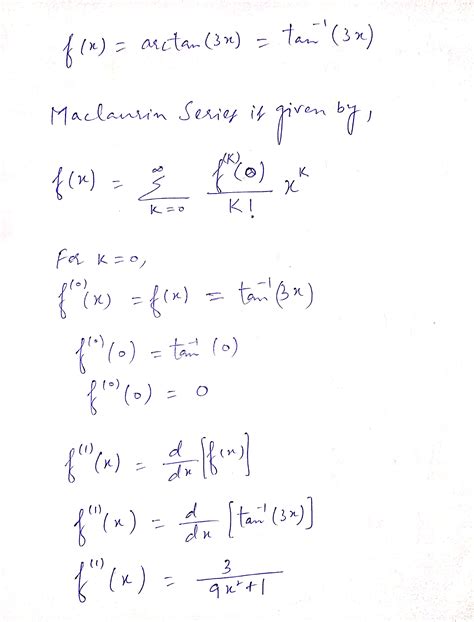 f(x) = arctan(3x) = tan⁻¹(3x)
Maclaurin Series is given by,
f(x) = ∑_{K=0}^{∞} f^{(K)}(0)/K! x^K
For K=0,
f^{(0)}(x) = f(x) = tan⁻¹(3x)
f^{(0)}(0) = tan⁻¹(0)
f^{(0)}(0) = 0
f^{(1)}(x) = d/dx [f(x)]
f^{(1)}(x) = d/dx [tan⁻¹(3x)]
f^{(1)}(x) = 3/(9x²+1)